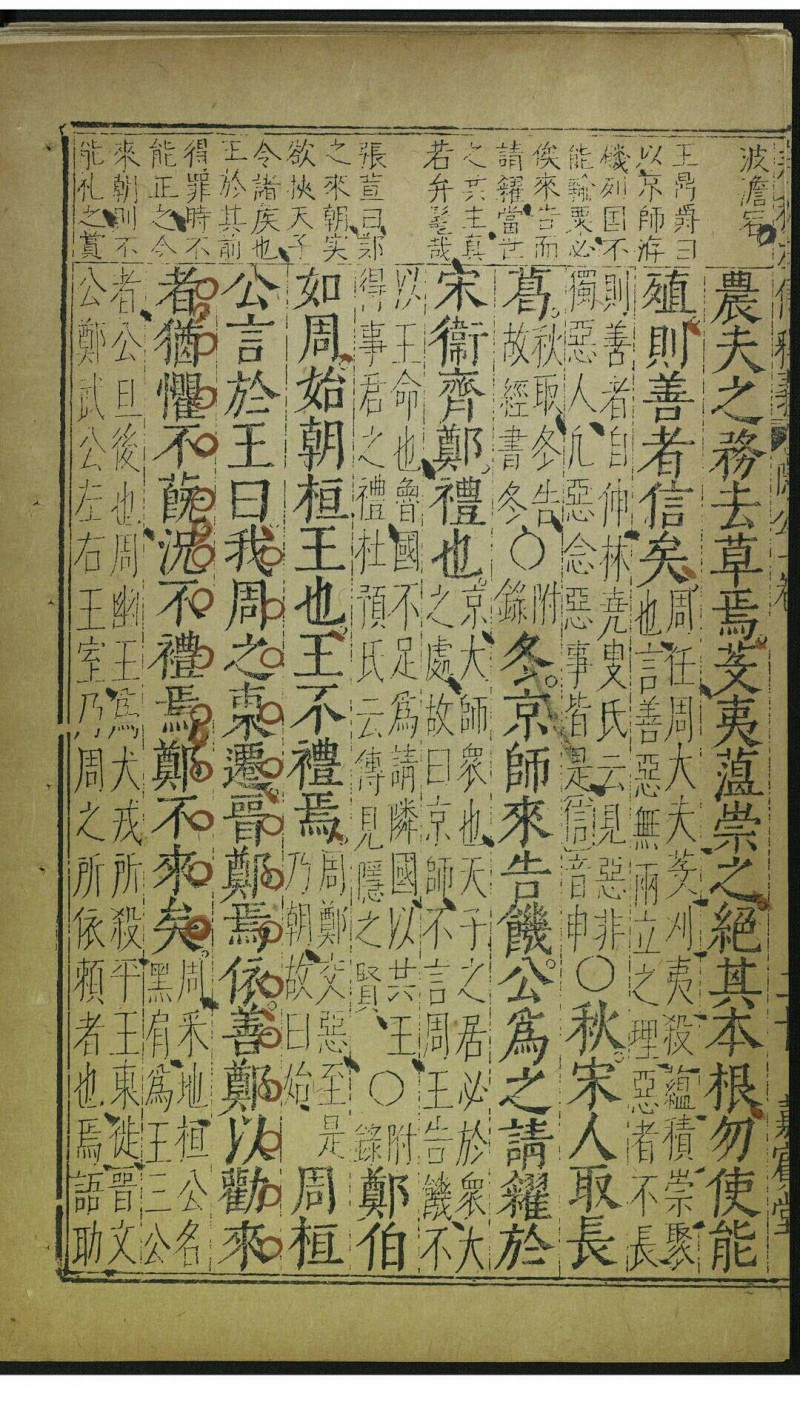 波澹宕
王鼎爵曰
以京師洊
饑列国不
能輸粟必
俟來告而
請糴當世
之共主真
若弁髦哉
張萱曰鄭
之來朝实
欲挾天子
令諸矦也
王於其前
得罪時不
能正之今
來朝則不
能礼之蓋
農夫之務去草焉芟夷薀崇之絕其本根勿使能
殖則善者信矣
周任周大夫芟刈夷殺蘊積崇聚
也言善惡無兩立之理惡者不長
則善者自伸林堯叟氏云見惡非
獨惡人凢惡念惡事皆是信音申
○秋宋人取長
葛
秋取冬告
故經書冬
○附
錄
冬京師來告饑公為之請糴於
宋衞齊鄭禮也
京大師衆也天子之居必於衆大
之處故曰京師不言周王告饑不
以王命也魯國不足為請隣國以共王
得事君之禮杜預氏云傳見隱之賢
○附
錄
鄭伯
如周始朝桓王也王不禮焉
周鄭交惡至是
乃朝故曰始
周桓
公言於王曰我周之東遷晋鄭焉依善鄭以勸來
者猶懼不蔇况不禮焉鄭不來矣
周采地桓公名
黑肩為王三公
者公旦後也周幽王為犬戎所殺平王東徙晋文
公鄭武公左右王室乃周之所依頼者也焉語助
隱公一卷